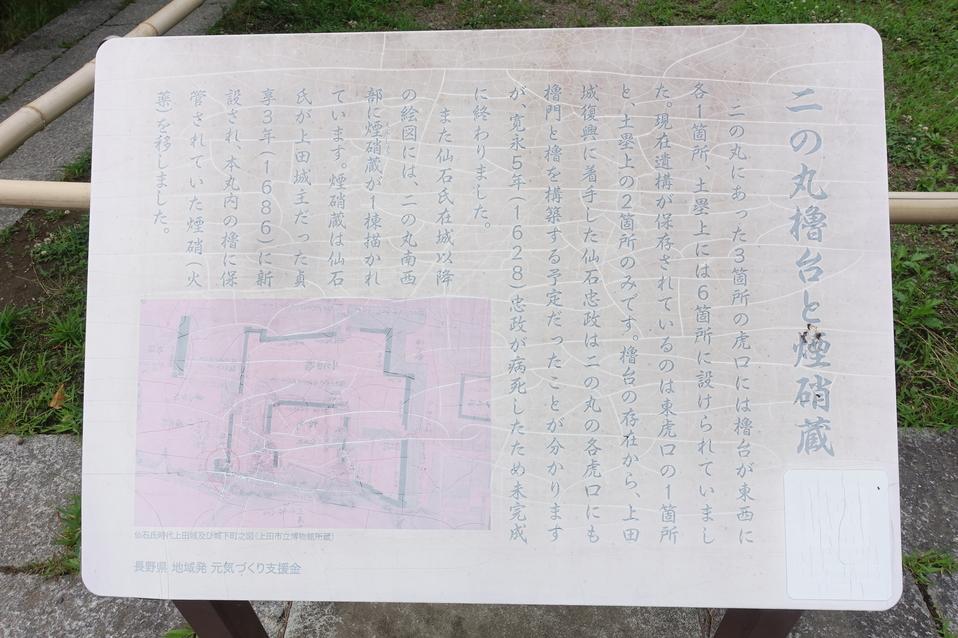 二の丸櫓台と煙硝蔵
二の丸にあった３箇所の虎口には櫓台が東西に
各１箇所、土塁上には６箇所に設けられていまし
た。現在遺構が保存されているのは東虎口の１箇所
と、土塁上の２箇所のみです。櫓台の存在から、上田
城復興に着手した仙石忠政は二の丸の各虎口にも
櫓門と櫓を構築する予定だったことが分かります
が、寛永５年（１６２８）忠政が病死したため未完成
に終わりました。
また仙石氏在城以降
の絵図には、二の丸南西
部に煙硝蔵が１棟描かれ
ています。煙硝蔵は仙石
氏が上田城主だった貞
享３年（１６８６）に新
設され、本丸内の櫓に保
管されていた煙硝（火
薬）を移しました。
仙石氏時代上田城及び城下町之図（上田市立博物館所蔵）
長野県 地域発 元気づくり支援金